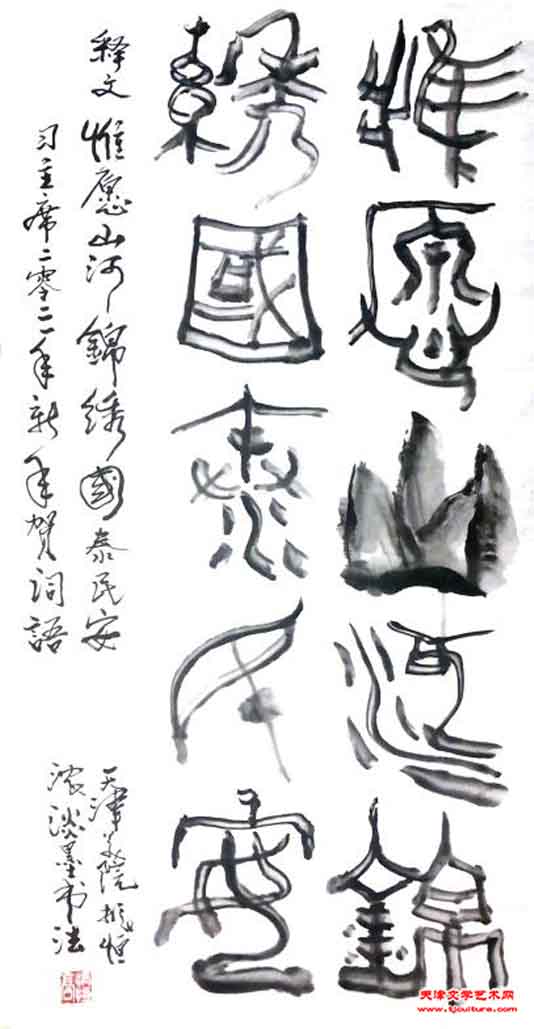 惟愿山河錦
繡國泰民安
释文 惟愿山河錦绣國泰民安
习主席二零二二年新年贺词語
天津美院
浓淡墨书法
天津文学艺术网
www.tjculture.com